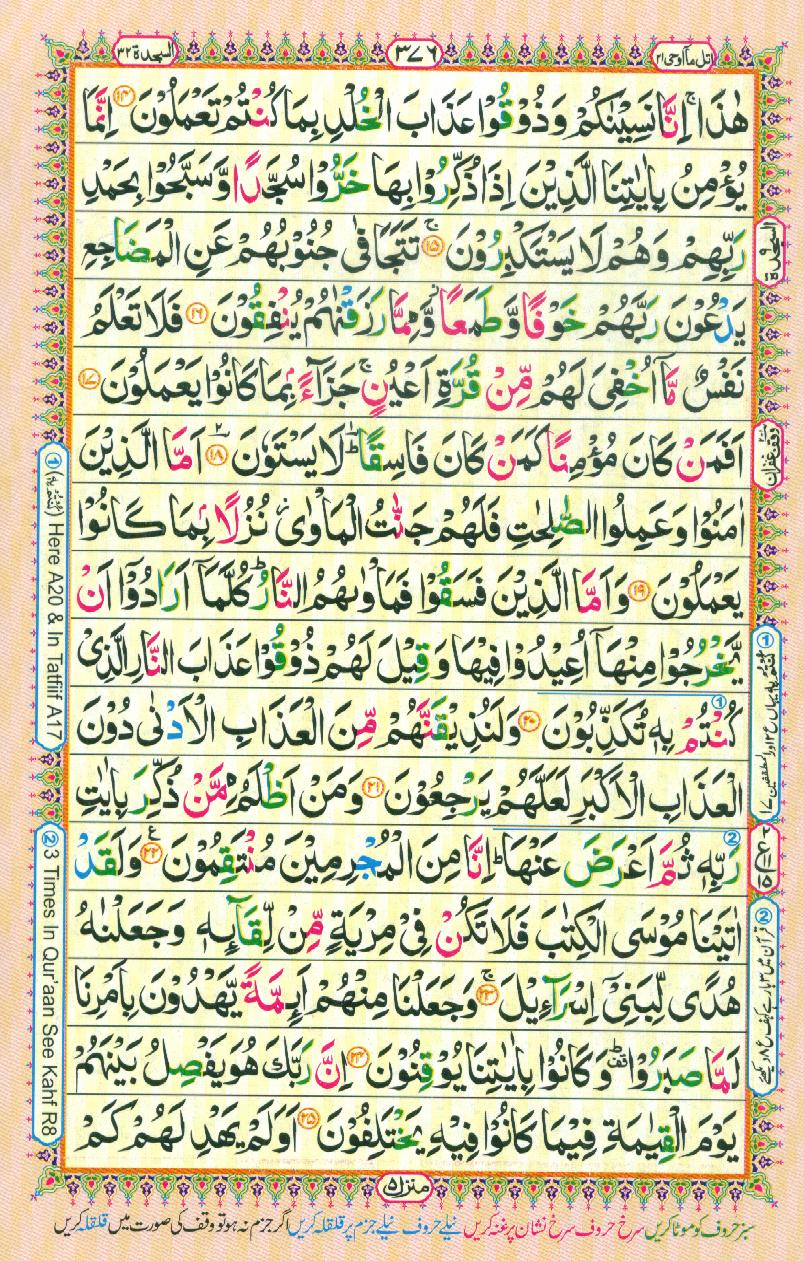 السجدة ٣٢
٣٧٦
اتل ما اوحی ٢١
هٰذَا ۚ اِنَّا نَسِيْنٰكُمْ وَذُوْقُوْا عَذَابَ الْخُلْدِ بِمَا كُنْتُمْ تَعْمَلُوْنَ ﴿١٤﴾ اِنَّمَا
يُؤْمِنُ بِاٰيٰتِنَا الَّذِيْنَ اِذَا ذُكِّرُوْا بِهَا خَرُّوْا سُجَّدًا وَّسَبَّحُوْا بِحَمْدِ
رَبِّهِمْ وَهُمْ لَا يَسْتَكْبِرُوْنَ ﴿١٥﴾ۚ تَتَجَافٰى جُنُوْبُهُمْ عَنِ الْمَضَاجِعِ
يَدْعُوْنَ رَبَّهُمْ خَوْفًا وَّطَمَعًا ۡ وَّمِمَّا رَزَقْنٰهُمْ يُنْفِقُوْنَ ﴿١٦﴾ فَلَا تَعْلَمُ
نَفْسٌ مَّاۤ اُخْفِيَ لَهُمْ مِّنْ قُرَّةِ اَعْيُنٍ ۚ جَزَآءًۢ بِمَا كَانُوْا يَعْمَلُوْنَ ﴿١٧﴾
اَفَمَنْ كَانَ مُؤْمِنًا كَمَنْ كَانَ فَاسِقًا ؕ لَا يَسْتَوٗنَ ﴿١٨﴾ اَمَّا الَّذِيْنَ
اٰمَنُوْا وَعَمِلُوا الصّٰلِحٰتِ فَلَهُمْ جَنّٰتُ الْمَاْوٰى ۡ نُزُلًاۢ بِمَا كَانُوْا
يَعْمَلُوْنَ ﴿١٩﴾ وَاَمَّا الَّذِيْنَ فَسَقُوْا فَمَاْوٰىهُمُ النَّارُ ؕ كُلَّمَاۤ اَرَادُوْۤا اَنْ
يَّخْرُجُوْا مِنْهَاۤ اُعِيْدُوْا فِيْهَا وَقِيْلَ لَهُمْ ذُوْقُوْا عَذَابَ النَّارِ الَّذِيْ
كُنْتُمْ بِهٖ تُكَذِّبُوْنَ ﴿٢٠﴾ وَلَنُذِيْقَنَّهُمْ مِّنَ الْعَذَابِ الْاَدْنٰى دُوْنَ
الْعَذَابِ الْاَكْبَرِ لَعَلَّهُمْ يَرْجِعُوْنَ ﴿٢١﴾ وَمَنْ اَظْلَمُ مِمَّنْ ذُكِّرَ بِاٰيٰتِ
رَبِّهٖ ثُمَّ اَعْرَضَ عَنْهَا ؕ اِنَّا مِنَ الْمُجْرِمِيْنَ مُنْتَقِمُوْنَ ﴿٢٢﴾ وَلَقَدْ
اٰتَيْنَا مُوْسَى الْكِتٰبَ فَلَا تَكُنْ فِيْ مِرْيَةٍ مِّنْ لِّقَآئِهٖ وَجَعَلْنٰهُ
هُدًى لِّبَنِيْۤ اِسْرَآءِيْلَ ﴿٢٣﴾ۚ وَجَعَلْنَا مِنْهُمْ اَئِمَّةً يَّهْدُوْنَ بِاَمْرِنَا
لَمَّا صَبَرُوْا ؕ وَكَانُوْا بِاٰيٰتِنَا يُوْقِنُوْنَ ﴿٢٤﴾ اِنَّ رَبَّكَ هُوَ يَفْصِلُ بَيْنَهُمْ
يَوْمَ الْقِيٰمَةِ فِيْمَا كَانُوْا فِيْهِ يَخْتَلِفُوْنَ ﴿٢٥﴾ اَوَلَمْ يَهْدِ لَهُمْ كَمْ
السجدة
وقف غفران
① (كُنْتُمْ بِهٖ) Here A20 & In Tatfiif A17
② 3 Times In Qur'aan See Kahf R8
منزل ٥
سبز حروف کو موٹا کریں سرخ حروف سرخ نشان پر غنہ کریں نیلے حروف نیلے جزم پر قلقلہ کریں اگر جزم نہ ہو تو وقف کی صورت میں قلقلہ کریں